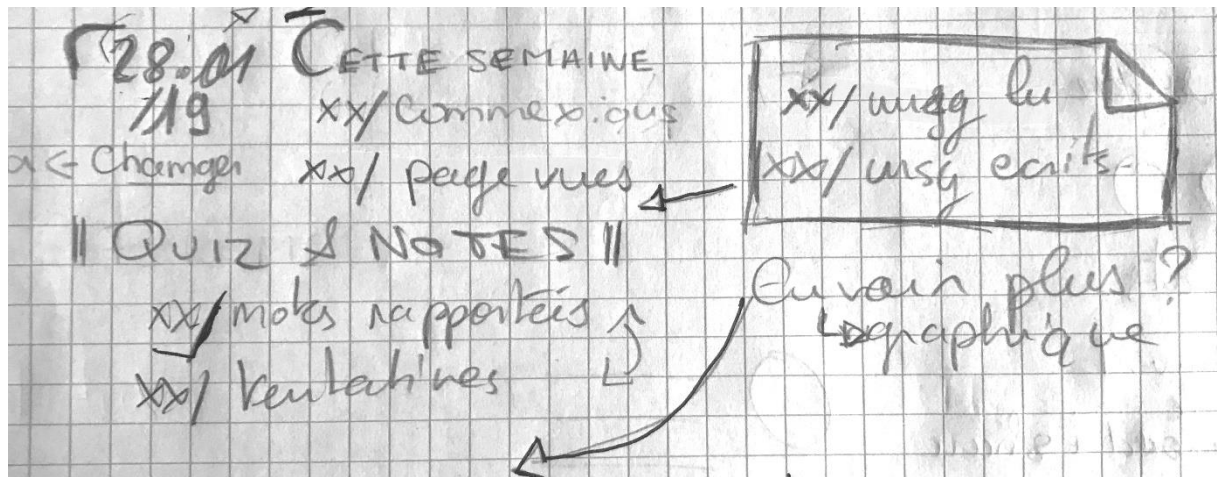 28.01 CETTE SEMAINE
/19 xx/ Connexions
<- Changer xx/ page vues
|| QUIZ & NOTES ||
xx/ notes rapportées
xx/ tentatives
xx/ msg lu
xx/ msg ecrits
En voir plus ?
graphique